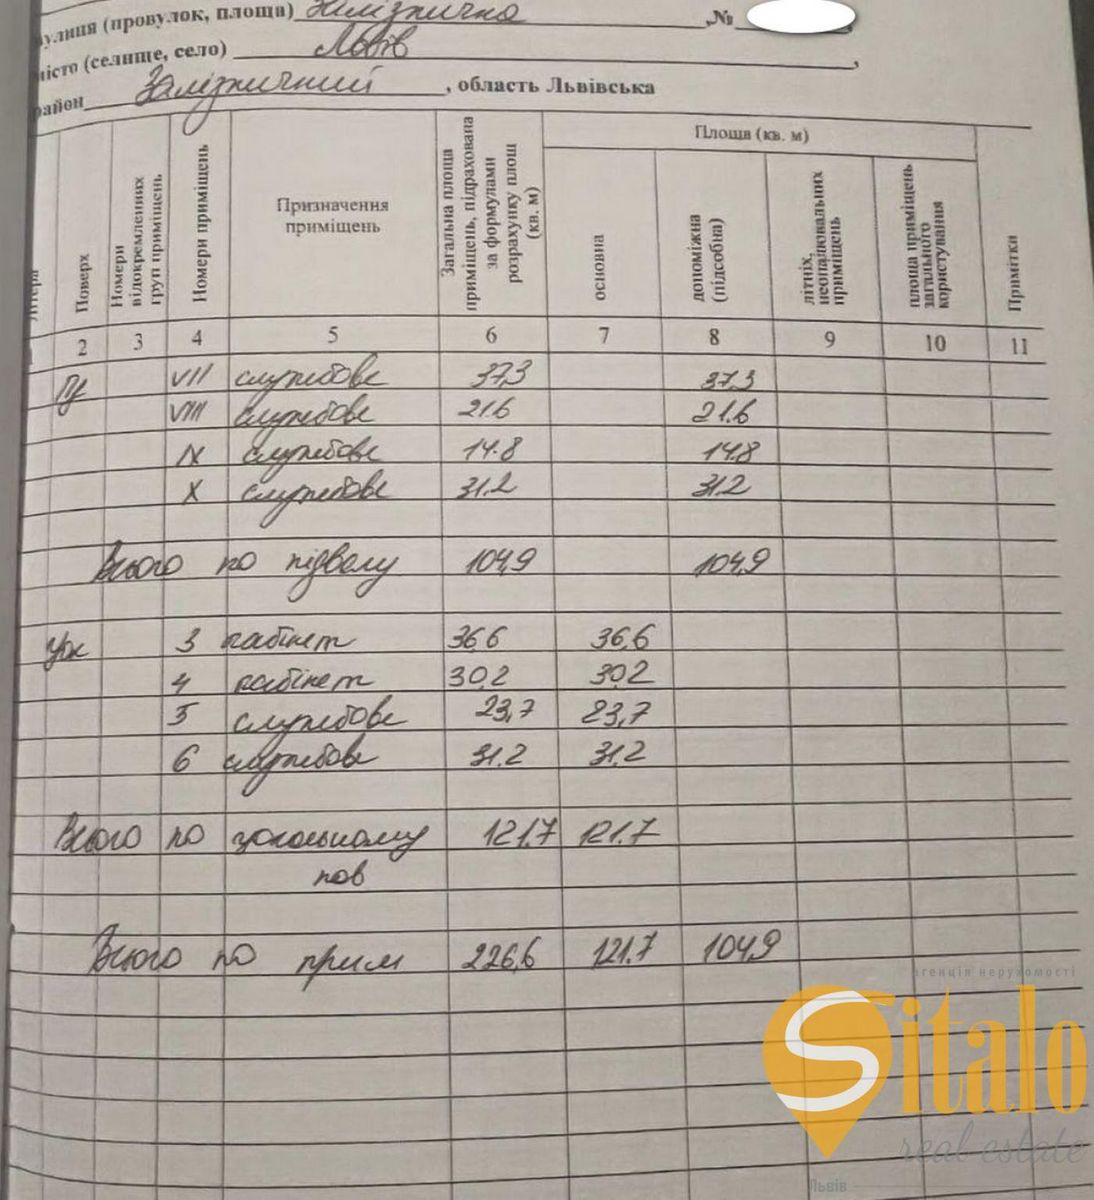 вулиця (провулок, площа) Залізнична ,№
місто (селище, село) Львів ,
район Залізничний , область Львівська
Літера
Поверх
Номери відокремленних груп приміщень
Номери приміщень
Призначення приміщень
Загальна площа приміщень, підрахована за формулами розрахунку площ (кв. м)
Площа (кв. м)
основна
допоміжна (підсобна)
літніх, неопалювальних приміщень
площа приміщень загального користування
Примітки
2 3 4 5 6 7 8 9 10 11
VII службове 37,3 37,3
VIII службове 21.6 21.6
IX службове 14.8 14.8
X службове 31.2 31.2
Всього по підвалу 104,9 104,9
Цок 3 кабінет 36,6 36,6
4 кабінет 30,2 30,2
5 службове 23,7 23,7
6 службове 31.2 31.2
Всього по цокольному 121.7 121.7
пов
Всього по прим 226,6 121.7 104,9
агенція нерухомості
Sitalo
real estate
Львів